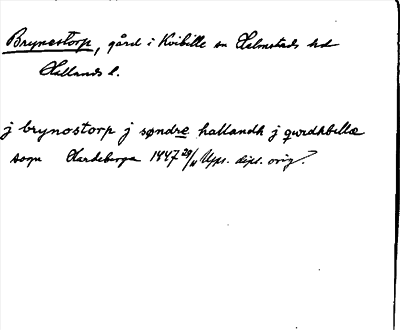 Brynestorp, gård i Kvibille sn Halmstads hd
Hallands l.
j brynostorp j søndre hallandh j qwidhbillæ
sogn Vardeberga 1447 29/11 Upps. dipl. orig.